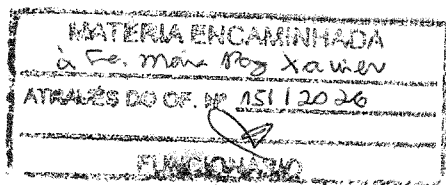 MATÉRIA ENCAMINHADA
à Xavier
ATRAVÉS DO OF. Nº 151 / 2026
FUNCIONÁRIO